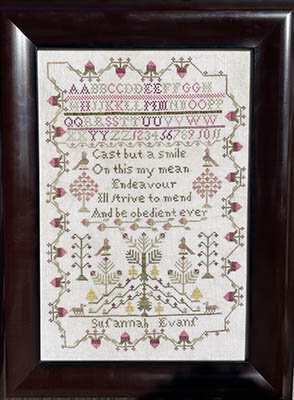 AABBCCDDEEFFGGH
HIIJKKLLMMNNOOPP
QQRRSSTTUUVVWW
YYZZ1234567891011
Cast but a smile
On this my mean
Endeavour
Ill strive to mend
And be obedient ever
Susannah Evans